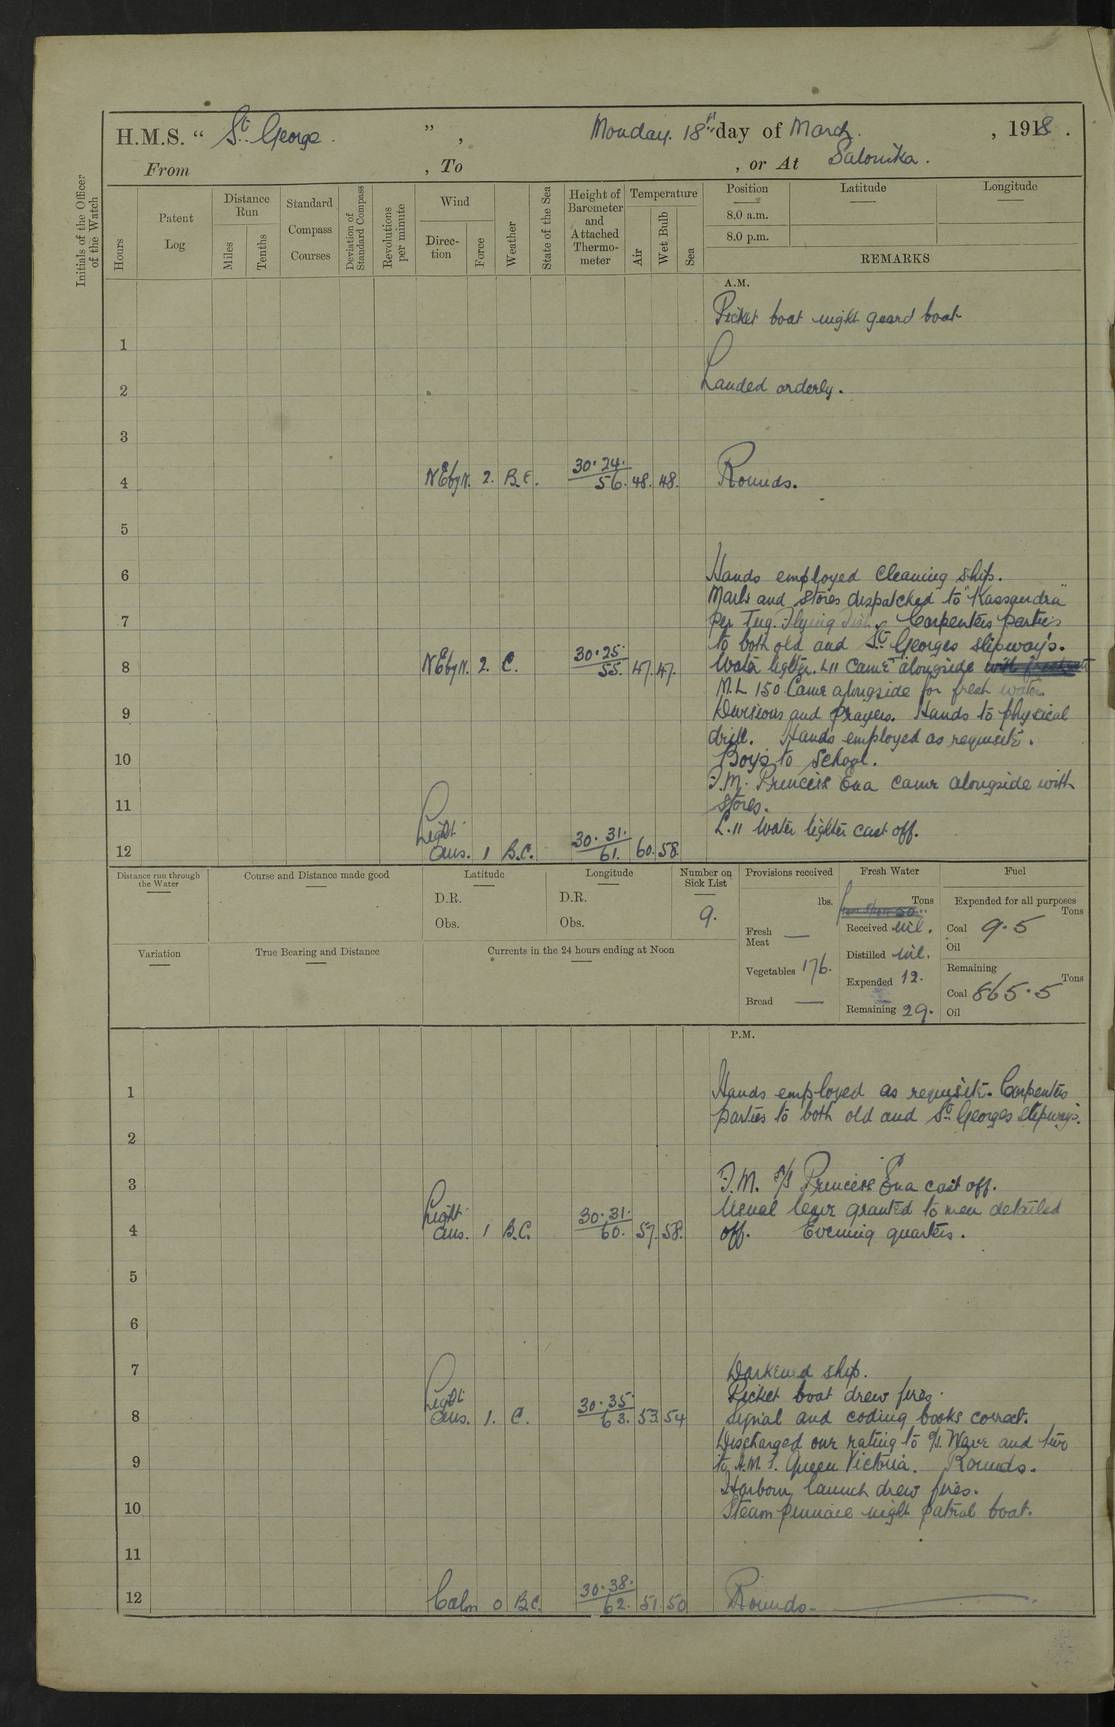 H.M.S. " St. George " , Monday. 18th day of March , 1918 .
From , To , or At Salonika .
Initials of the Officer of the Watch
Hours
Patent Log
Distance Run
Miles
Tenths
Standard Compass Courses
Deviation of Standard Compass
Revolutions per minute
Wind
Direction
Force
Weather
State of the Sea
Height of Barometer and Attached Thermometer
Temperature
Air
Wet Bulb
Sea
Position
8.0 a.m.
8.0 p.m.
Latitude
Longitude
REMARKS
A.M.
Picket boat night guard boat
1
Landed orderly.
2
3
4 NE by N. 2. B.C. 30.24. 56. 48. 48. Rounds.
5
6 Hands employed cleaning ship.
Mails and stores dispatched to "Kassandra"
7 per Tug. Flying Fish. Carpenters parties
to both old and St. Georges slipway's.
8 NE by N. 2. C. 30.25. 55. 47. 47. Water lighter. L11 came alongside
M.L 150 Came alongside for fresh water.
9 Divisions and Prayers. Hands to physical
drill. Hands employed as requisite.
10 Boys to School.
F.M. Princess Ena came alongside with
11 stores.
L.11 Water lighter cast off.
12 Light airs. 1 B.C. 30.31. 61. 60. 58.
Distance run through the Water
Course and Distance made good
Latitude
D.R.
Obs.
Longitude
D.R.
Obs.
Number on Sick List
9.
Provisions received
lbs.
Fresh Meat —
Vegetables 176.
Bread —
Fresh Water
Tons
Received nil.
Distilled nil.
Expended 12.
Remaining 29.
Fuel
Expended for all purposes
Tons
Coal 9.5
Oil
Remaining
Tons
Coal 865.5
Oil
Variation
True Bearing and Distance
Currents in the 24 hours ending at Noon
P.M.
1 Hands employed as requisite. Carpenters
parties to both old and St. Georges slipways.
2
3 F.M. S/S Princess Ena cast off.
Usual leave granted to men detailed
4 Light airs. 1 B.C. 30.31. 60. 57. 58. off. Evening quarters.
5
6
7 Darkened ship.
Picket boat drew fires.
8 Light airs. 1. C. 30.35. 63. 53. 54 Signal and coding books correct.
Discharged one rating to S/S. Wave and two
9 to H.M.S. Queen Victoria. Rounds.
Harbour launch drew fires.
10 Steam pinnace night patrol boat.
11
12 Calm 0 B.C. 30.38. 62. 51. 50 Rounds.